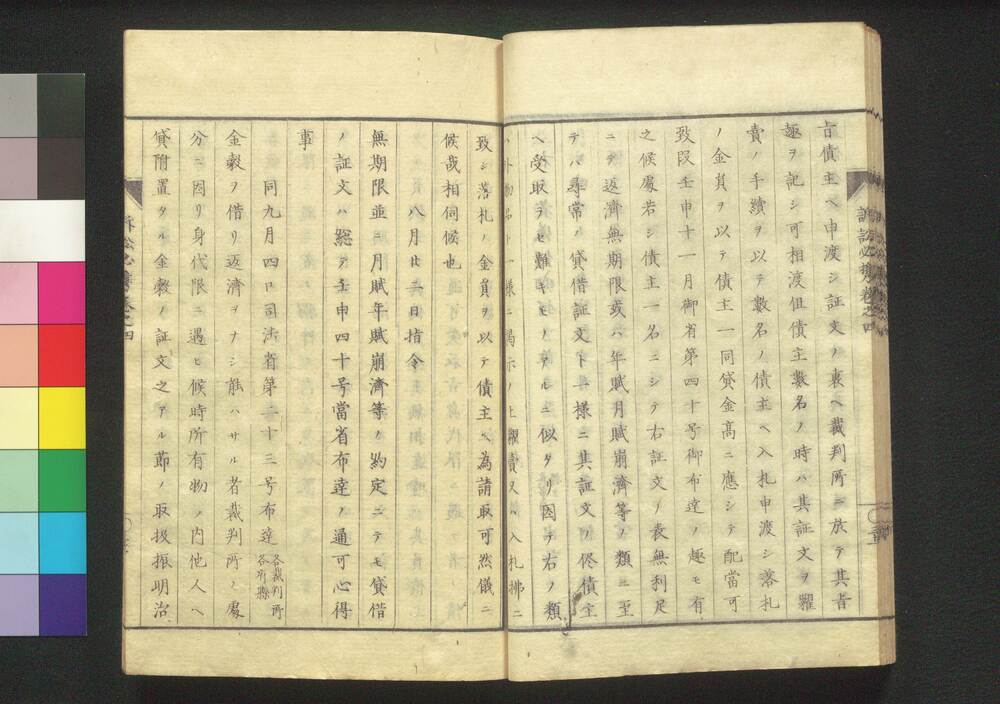 旨債主ヘ申渡シ証文ノ裏ヘ裁判所ニ放テ其旨
趣ヲ記シ可相渡但債主數名ノ時ハ其証文ヲ糶
賣ノ手續ヲ以テ數名ノ債主ヘ入札申渡シ落札
ノ金員ヲ以テ債主一同貸金髙ニ應シテ配當可
致段壬申十一月御省第四十号御布達ノ趣モ有
之候處若シ債主一名ニシテ右証文ノ表無利足
ニテ返濟無期限或ハ年賦月賦崩濟等ノ類ニ至
テハ尋常ノ貸借証文ト一樣ニ其証文ノ侭債主
ヘ受取ラセ難キモノアルニ似タリ因テ右ノ類
ハ外物品ト一樣ニ揭示ノ上糶賣又ハ入札拂ニ
致シ落札ノ金員ヲ以テ債主ヘ為請取可然儀ニ
候哉相伺候也
八月廿二日指令
無期限並ニ月賦年賦崩濟等ノ約定ニテモ貸借
ノ証文ハ総テ壬申四十号當省布達ノ通可心得
事
同九月四日司法省第二十三号布達 各裁判所 各府縣
金穀ヲ借リ返濟ヲナシ能ハサル者裁判所ノ處
分ニ因リ身代限ニ遇ヒ候時所有物ノ内他人ヘ
貸附置タル金穀ノ証文之アル節ノ取扱振明治
訴訟必携卷之四